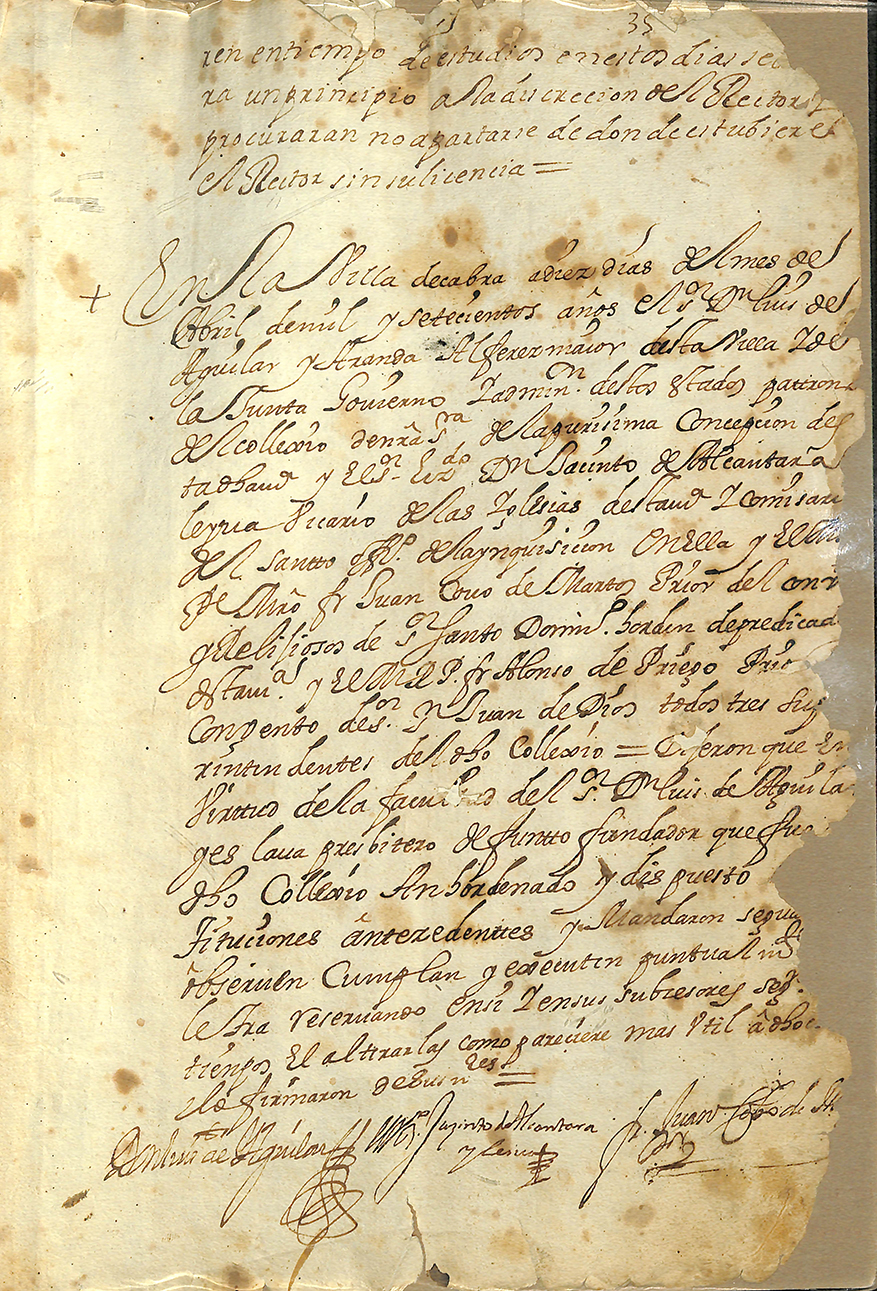 35
ren entiempo de estudios en estos dias se
ra un principio a la discrecion de el Rector y
procuraran no apartarse de donde estubiere
el Rector sin su licencia =
+ En la Villa de cabra a diez dias del mes de
Abril de mil y setecientos años el Sr. Dn Luis de
Aguilar y Aranda Alferez maior desta Villa Y de
la Junta Govierno Y admin.on destos estados patron
del collexio de nra Sra de la purissima Concepcion des
ta dha ud y El Sr. Lizdo Dn Jacinto de Alcantara
leyua Vicario de las Yglesias desta ud Y comisari
del santto offi.o de la ynquisicion en ella y El M
Pe Mro fr Juan Covo de Martos Prior del conv
y Relijiosos de sn Santo Domin.o horden de predicad
desta ui.a y El M R P. fr Alonso de Priego Prio
Convento de Sn Ju Juan de Dios todos tres sup
rintendentes del dho Collexio = Dijeron que en
Virttud de la facultad del Sr. Dn Luis de Aguila
ges laua presbitero defuntto fundador que fue
dho Collexio An hordenado y dispuesto
tituciones antezedentes y Mandaron se gua
observen Cumplan y executen puntualm
letra reservando en si Y en sus subzesores seg.
tiempos El altterarlas como pareciere mas Util a dho c
y lo firmaron de sus nres =
Dn Luis de Aguilar Jazinto de Alcantara fr. Juan Cobo de M
y Leiua Pr